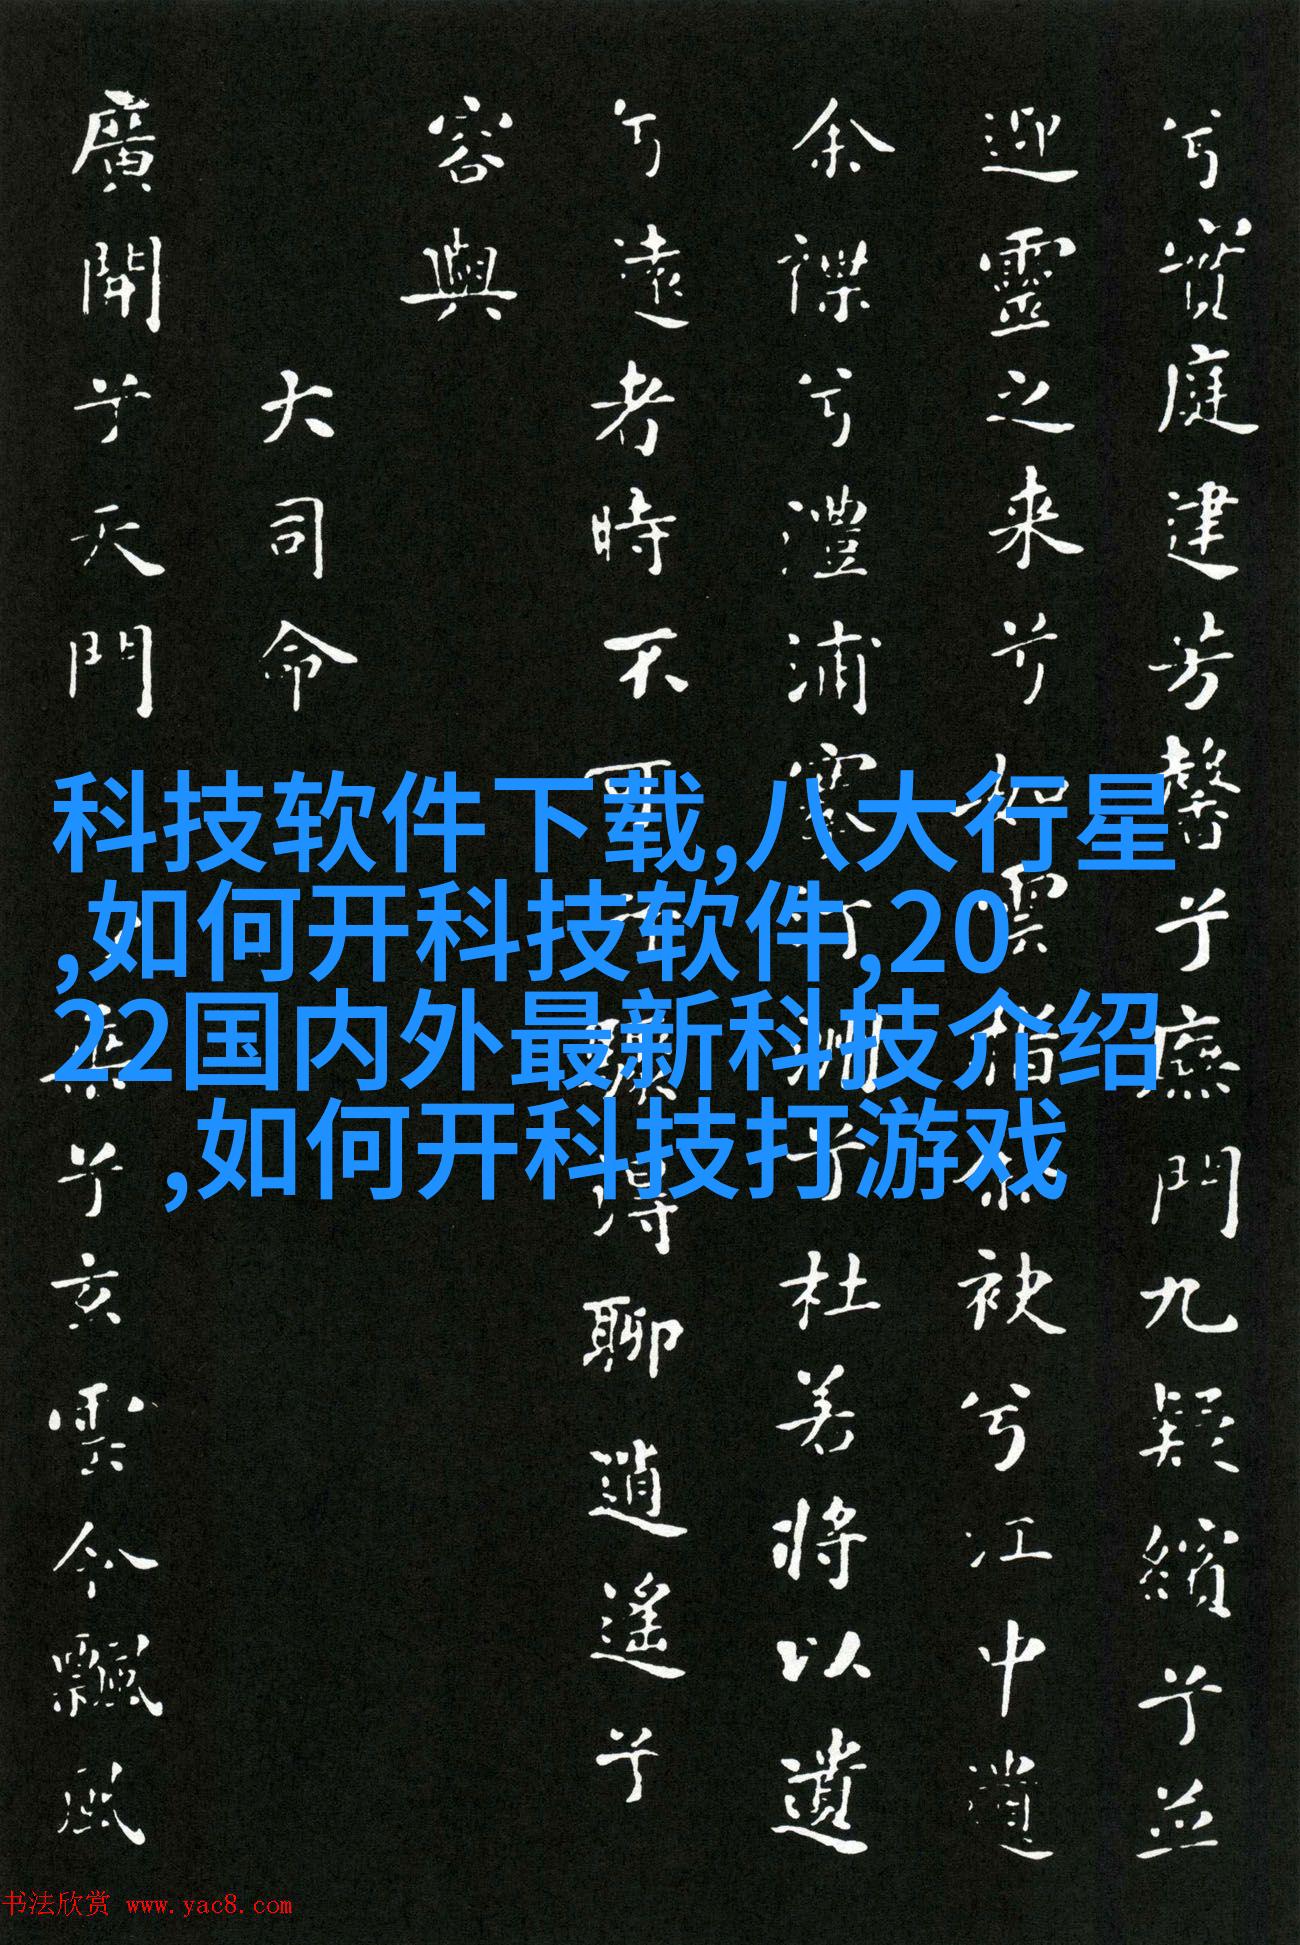 兮實庭建芳馨兮廡門九疑繽兮並
迎靈之来兮如雲捐余袂兮江中遺
余褋兮澧浦搴汀洲兮杜若將以遺
兮遠者時不可兮驟得聊逍遙兮
容與
大司命
廣開兮天門乘兮玄雲令飄風
科技软件下载,八大行星
,如何开科技软件,20
22国内外最新科技介绍
,如何开科技打游戏
书法欣赏 www.yac8.com